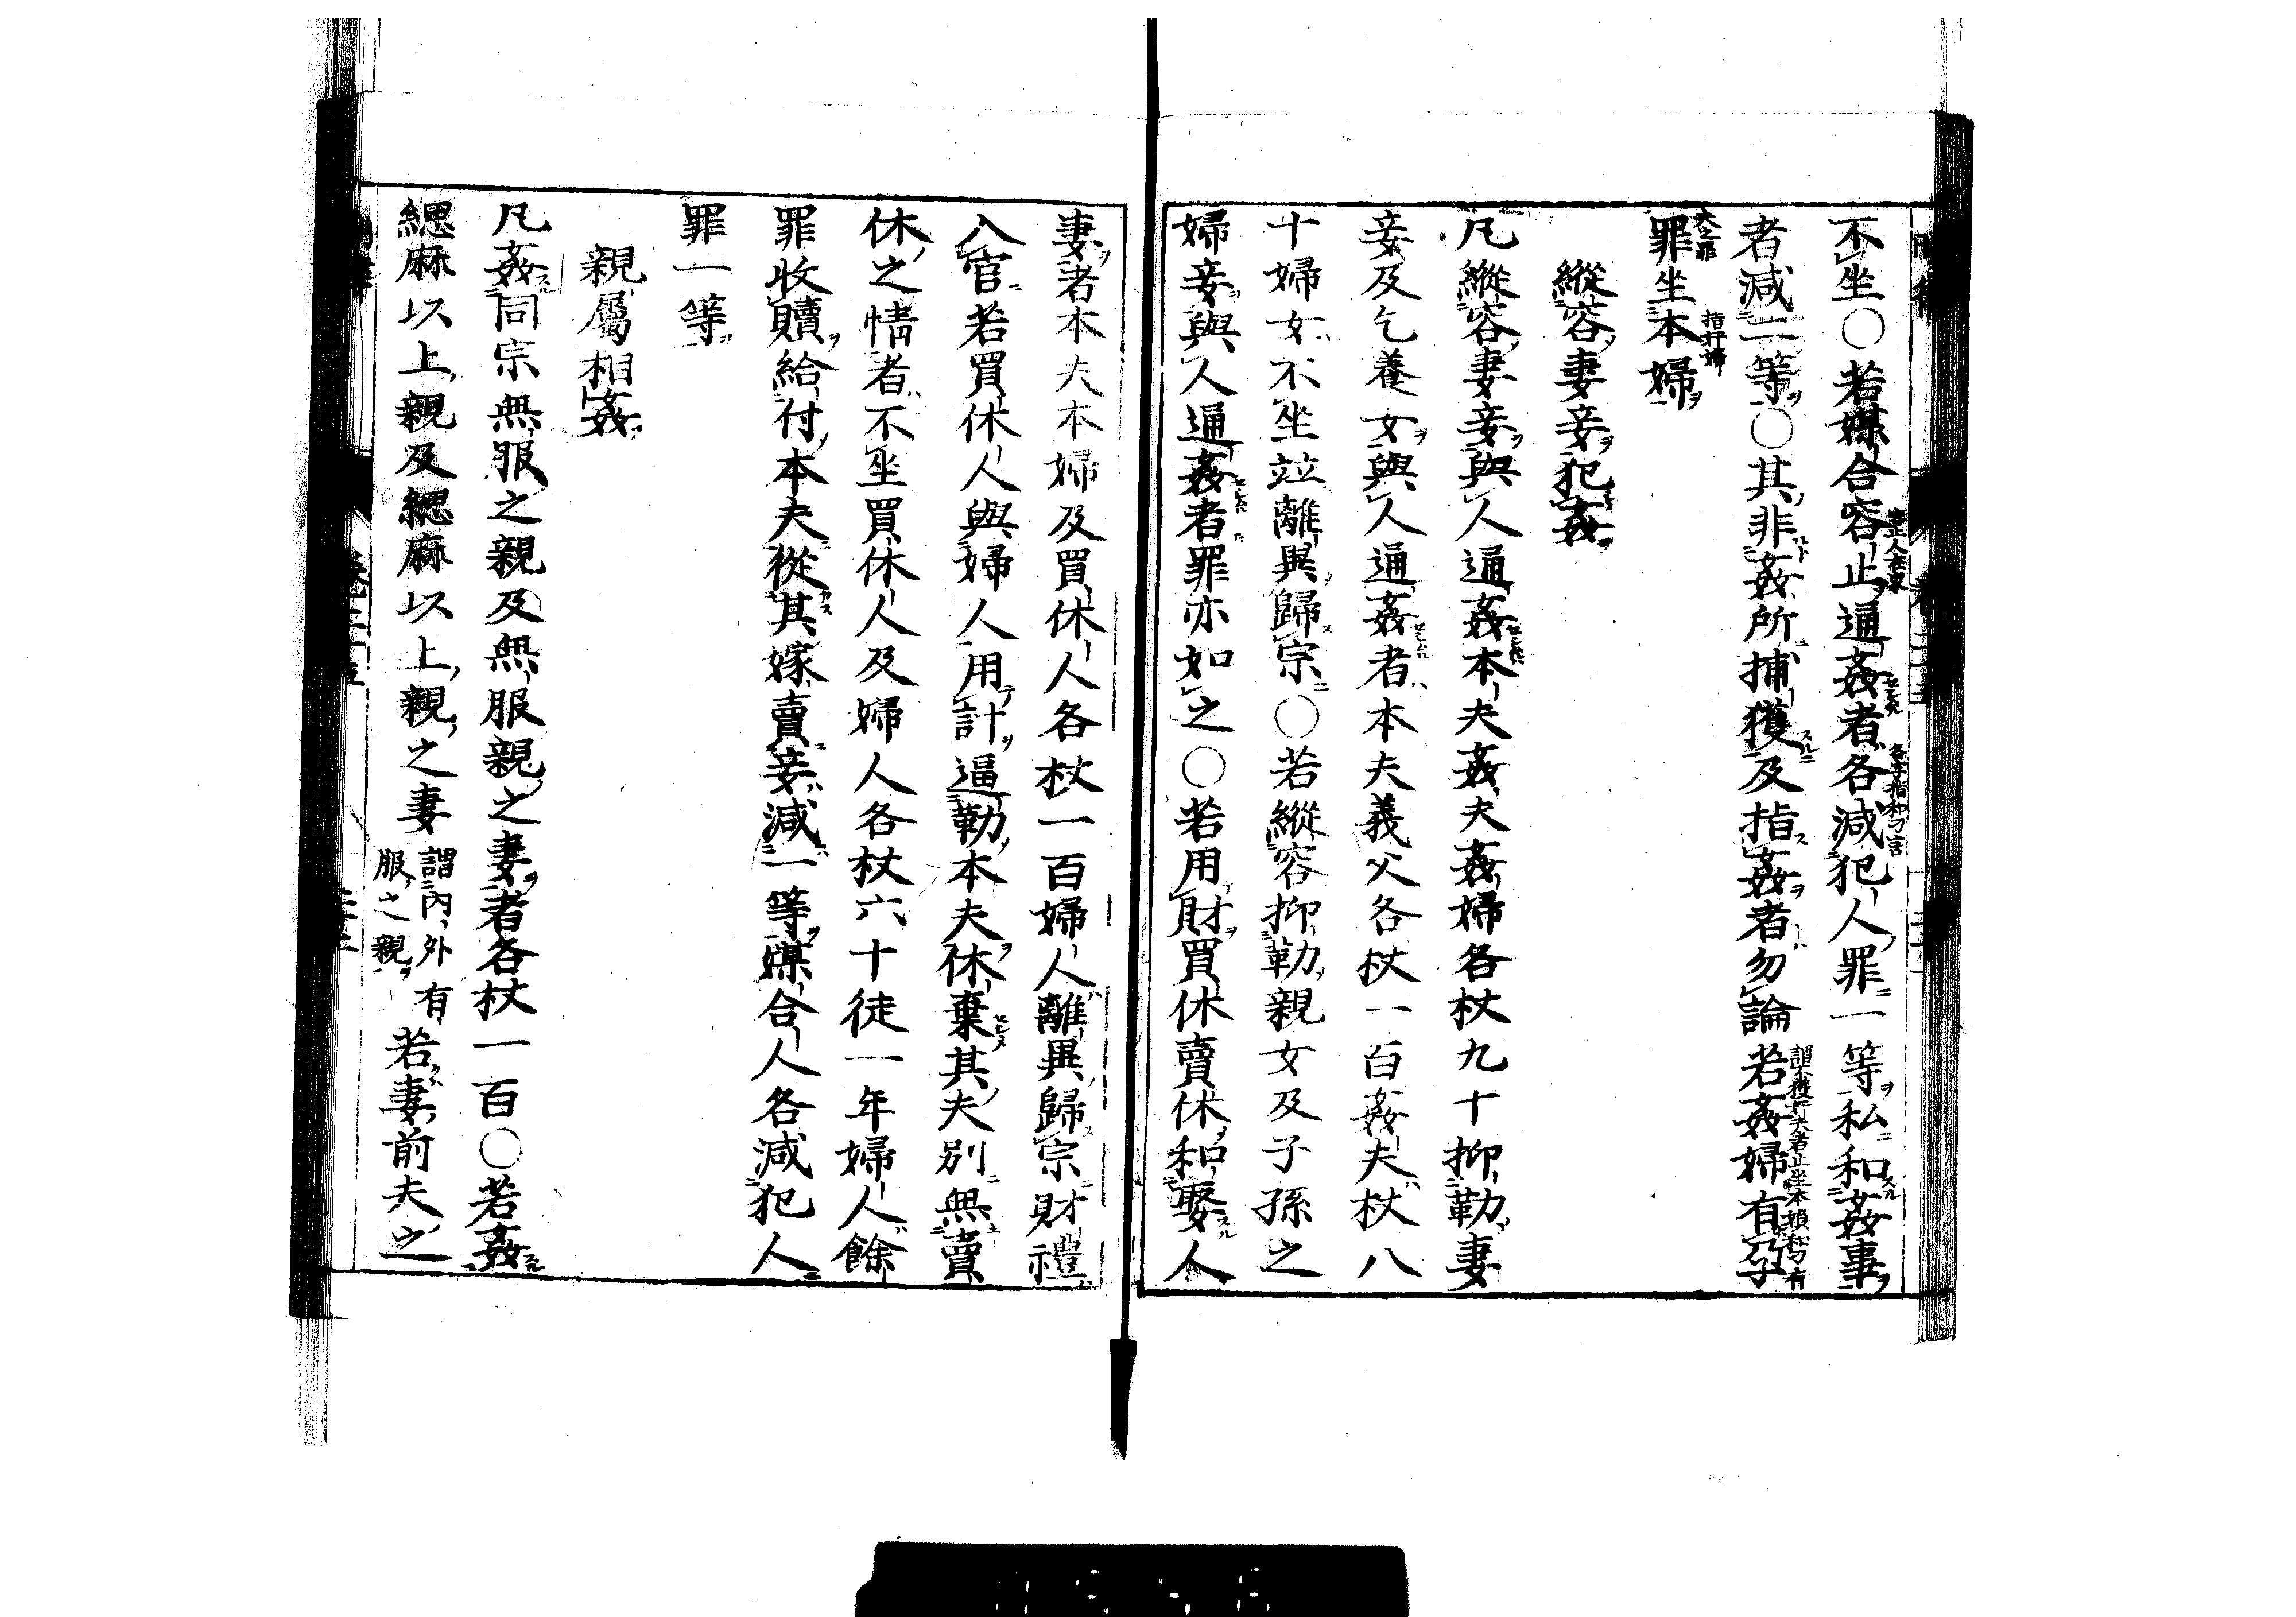 不坐○若媒合容止通姦者各減犯人罪一等私和姦事
者減二等○其非姦所捕獲及指姦者勿論若姦婦有孕
罪坐本婦
縱容妻妾犯姦
凡縱容妻妾與人通姦本夫姦夫姦婦各杖九十抑勒妻
妾及乞養女與人通姦者本夫義父各杖一百姦夫杖八
十婦女不坐竝離異歸宗○若縱容抑勒親女及子孫之
婦妾與人通姦者罪亦如之○若用財買休賣休和娶人
妻者本夫本婦及買休人各杖一百婦人離異歸宗財禮
入官若買休人與婦人用計逼勒本夫休棄其夫別無賣
休之情者不坐買休人及婦人各杖六十徒一年婦人餘
罪收贖給付本夫從其嫁賣妾減一等媒合人各減犯人
罪一等
親屬相姦
凡姦同宗無服之親及無服親之妻者各杖一百○若姦
緦麻以上親及緦麻以上親之妻謂內外有服之親若妻前夫之